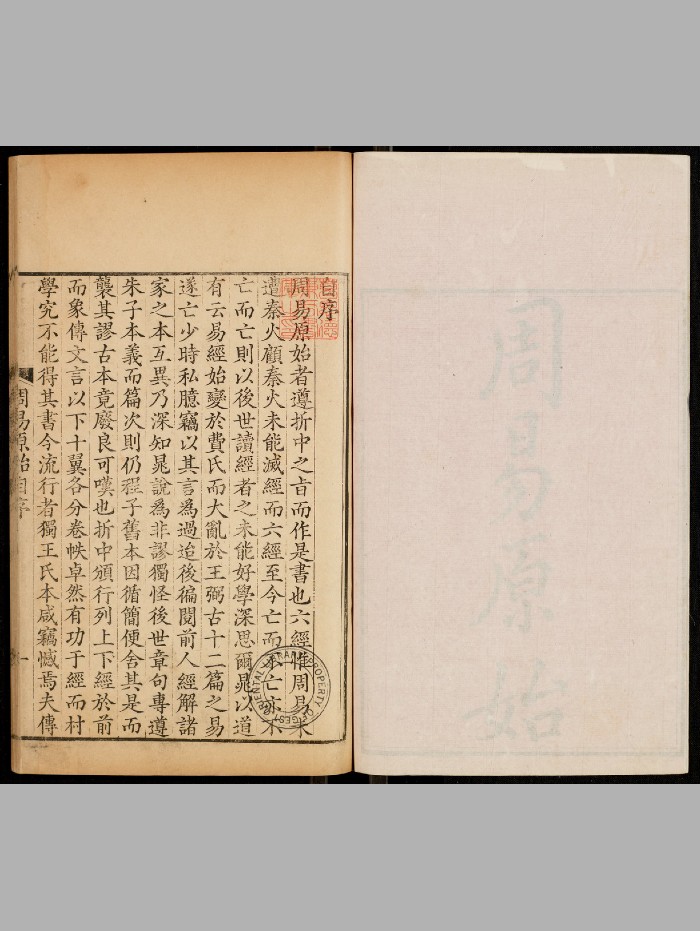 周易原始
自序
周易原始者遵折中之旨而作是書也六經惟周易未
遭秦火顧秦火未能滅經而六經至今亡而不亡亦不
亡而亡則以後世讀經者之未能好學深思爾晁以道
有云易經始變於費氏而大亂於王弼古十二篇之易
遂亡少時私臆竊以其言爲過迨後徧閱前人經解諸
家之本互異乃深知晁說爲非謬獨怪後世章句專遵
朱子本義而篇次則仍程子舊本因循簡便舍其是而
襲其謬古本竟廢良可嘆也折中頒行列上下經於前
而彖傳文言以下十翼各分卷帙卓然有功于經而村
學究不能得其書今流行者獨王氏本咸竊憾焉夫傳
周易原始自序 一
PROPERTY OF GEST ORIENTAL LIBRARY